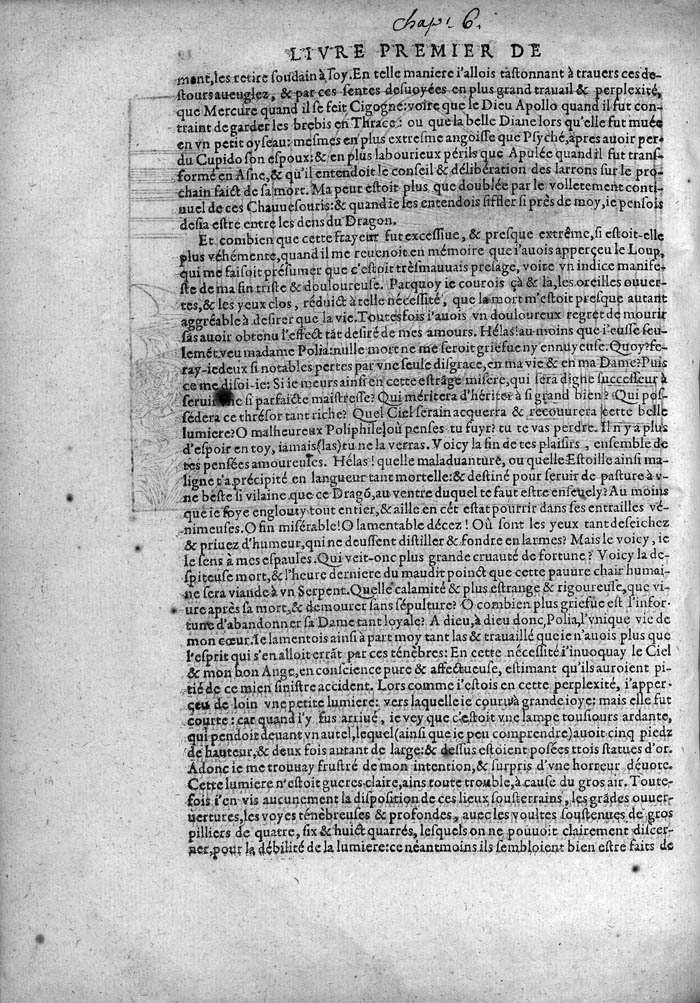 chap. 6.
LIVRE PREMIER DE
mont, les retire soudain à soy. En telle maniere i'allois tastonnant à trauers ces de-
stours aueuglez, & par ces sentes desuoyées en plus grand trauail & perplexité,
que Mercure quand il se feit Cigogne: voire que le Dieu Apollo quand il fut con-
traint de garder les brebis en Thrace: ou que la belle Diane lors qu'elle fut muée
en vn petit oyseau: mesmes en plus extresme angoisse que Psyché, apres auoir per-
du Cupido son espoux: & en plus labourieux périls que Apulée quand il fut trans-
formé en Asne, & qu'il entendoit le conseil & délibération des larrons sur le pro-
chain faict de sa mort. Ma peur estoit plus que doublée par le volletement conti-
nuel de ces Chauuesouris: & quand ie les entendois siffler si près de moy, ie pensois
desia estre entre les dens du Dragon.
Et combien que cette frayeur fut excessiue, & presque extrême, si estoit-elle
plus véhémente, quand il me reuenoit en mémoire que i'auois apperçeu le Loup,
qui me faisoit présumer que c'estoit trèsmauuais presage, voire vn indice manife-
ste de ma fin triste & douloureuse. Parquoy ie courois çà & là, les oreilles ouuer-
tes, & les yeux clos, réduict à telle nécessité, que la mort m'estoit presque autant
aggréable à desirer que la vie. Toutesfois i'auois vn douloureux regret de mourir
sãs auoir obtenu l'effect tãt desiré de mes amours. Hélas! au moins que i'eusse seu-
lemẽt veu madame Polia: nulle mort ne me seroit griefue ny ennuyeuse. Quoy? fe-
ray-ie deux si notables pertes par vne seule disgrace, en ma vie & en ma Dame? Puis
ce me disoi-ie: Si ie meurs ainsi en cette estrãge misere, qui sera digne successeur à
seruir vne si parfaicte maistresse? Qui méritera d'hériter à si grand bien? Qui pos-
sédera ce thrésor tant riche? Quel Ciel serain acquerra & recouurera cette belle
lumiere? O malheureux Poliphile, où penses-tu fuyr? tu te vas perdre. Il n'y a plus
d'espoir en toy, iamais (las) tu ne la verras. Voicy la fin de tes plaisirs, ensemble de
tes pensées amoureuses. Hélas! quelle maladuanture, ou quelle Estoille ainsi ma-
ligne t'a précipité en langueur tant mortelle: & destiné pour seruir de pasture à v-
ne béste si vilaine que ce Dragõ, au ventre duquel te faut estre enseuely? Au moins
que ie soye englouty tout entier, & aille en cét estat pourrir dans ses entrailles vé-
nimeuses. O fin misérable! O lamentable décez! Où sont les yeux tant deseichez
& priuez d'humeur, qui ne deussent distiller & fondre en larmes? Mais le voicy, ie
le sens à mes espaules. Qui veit-onc plus grande cruauté de fortune? Voicy la de-
spiteuse mort, & l'heure derniere du maudit poinct que cette pauure chair humai-
ne sera viande à vn Serpent. Quelle calamité & plus estrange & rigoureuse, que vi-
ure après sa mort, & demourer sans sépulture? O combien plus griefue est l'infor-
tune d'abandonner sa Dame tant loyale? A dieu, à dieu donc, Polia, l'vnique vie de
mon cœur. Ie lamentois ainsi à part moy tant las & trauaillé que ie n'auois plus que
l'esprit qui s'en alloit errãt par ces ténèbres: En cette nécessité i'inuoquay le Ciel
& mon bon Ange, en conscience pure & affectueuse, estimant qu'ils auroient pi-
tié de ce mien sinistre accident. Lors comme i'estois en cette perplexité, i'apper-
çeu de loin vne petite lumiere: vers laquelle ie couru à grande ioye: mais elle fut
courte: car quand i'y fus arriué, ie vey que c'estoit vne lampe tousiours ardante,
qui pendoit deuant vn autel, lequel (ainsi que ie peu comprendre) auoit cinq piedz
de hauteur, & deux fois autant de large: & dessus estoient posées trois statues d'or.
Adonc ie me trouuay frustré de mon intention, & surpris d'vne horreur déuote.
Cette lumiere n'estoit gueres claire, ains toute trouble, à cause du gros air. Toute-
fois i'en vis aucunement la disposition de ces lieux sousterrains, les grãdes ouuer-
uertures, les voyes ténèbreuses & profondes, auec les voultes soustenues de gros
pilliers de quatre, six & huict quarrés, lesquels on ne pouuoit clairement discer-
ner, pour la débilité de la lumiere: ce néantmoins ils sembloient bien estre faits de